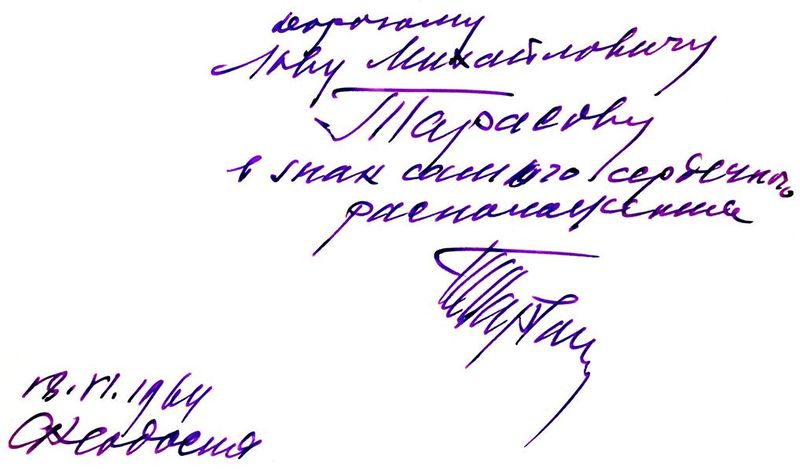 дорогому
Льву Михайловичу
Тарасову
в знак самого сердечного
расположения
18.VI.1964
Феодосия